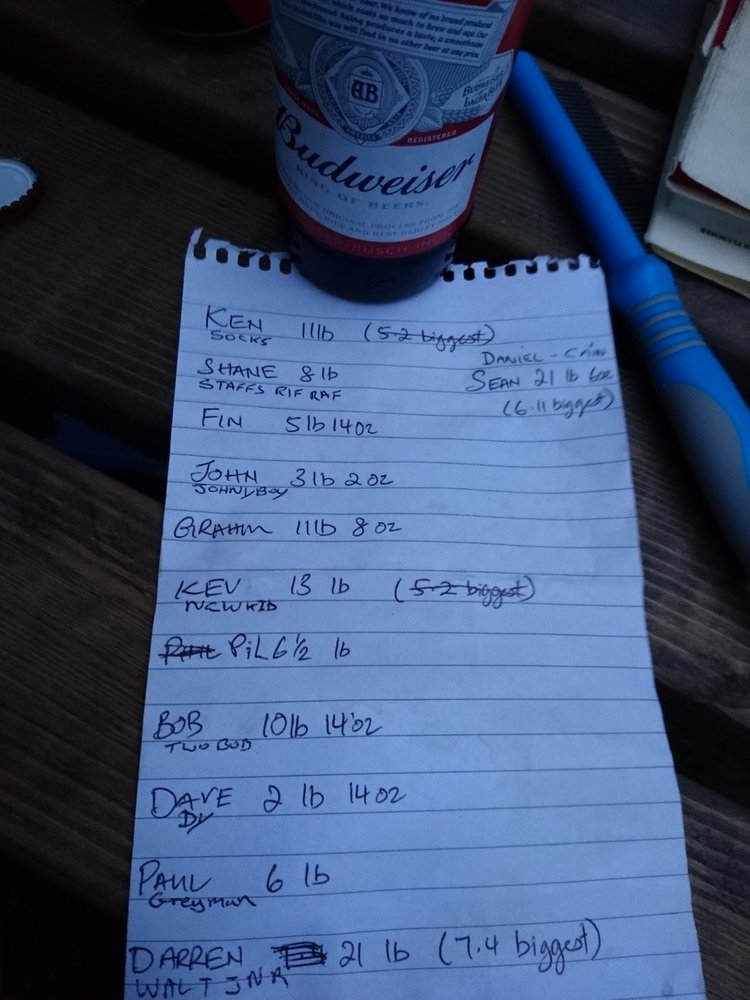 AB
BUDWEISER
LAGER BEER
REGISTERED
Budweiser
KING OF BEERS.
KEN 11lb (5-2 biggest)
SOCKS
DANIEL -
SHANE 8 lb
SEAN 21 lb 6oz
STAFFS RIF RAF
(6.11 biggest)
FIN 5lb 14oz
JOHN 3lb 2oz
JOHNYBOY
GRAHM 11lb 8 oz
KEV 13 lb (5-2 biggest)
NEWKID
PiL 6 1/2 lb
BOB 10lb 14oz
TWO BOB
DAVE 2 lb 14oz
DV
PAUL 6 lb
Greyman
DARREN 21 lb (7.4 biggest)
WALT JNR